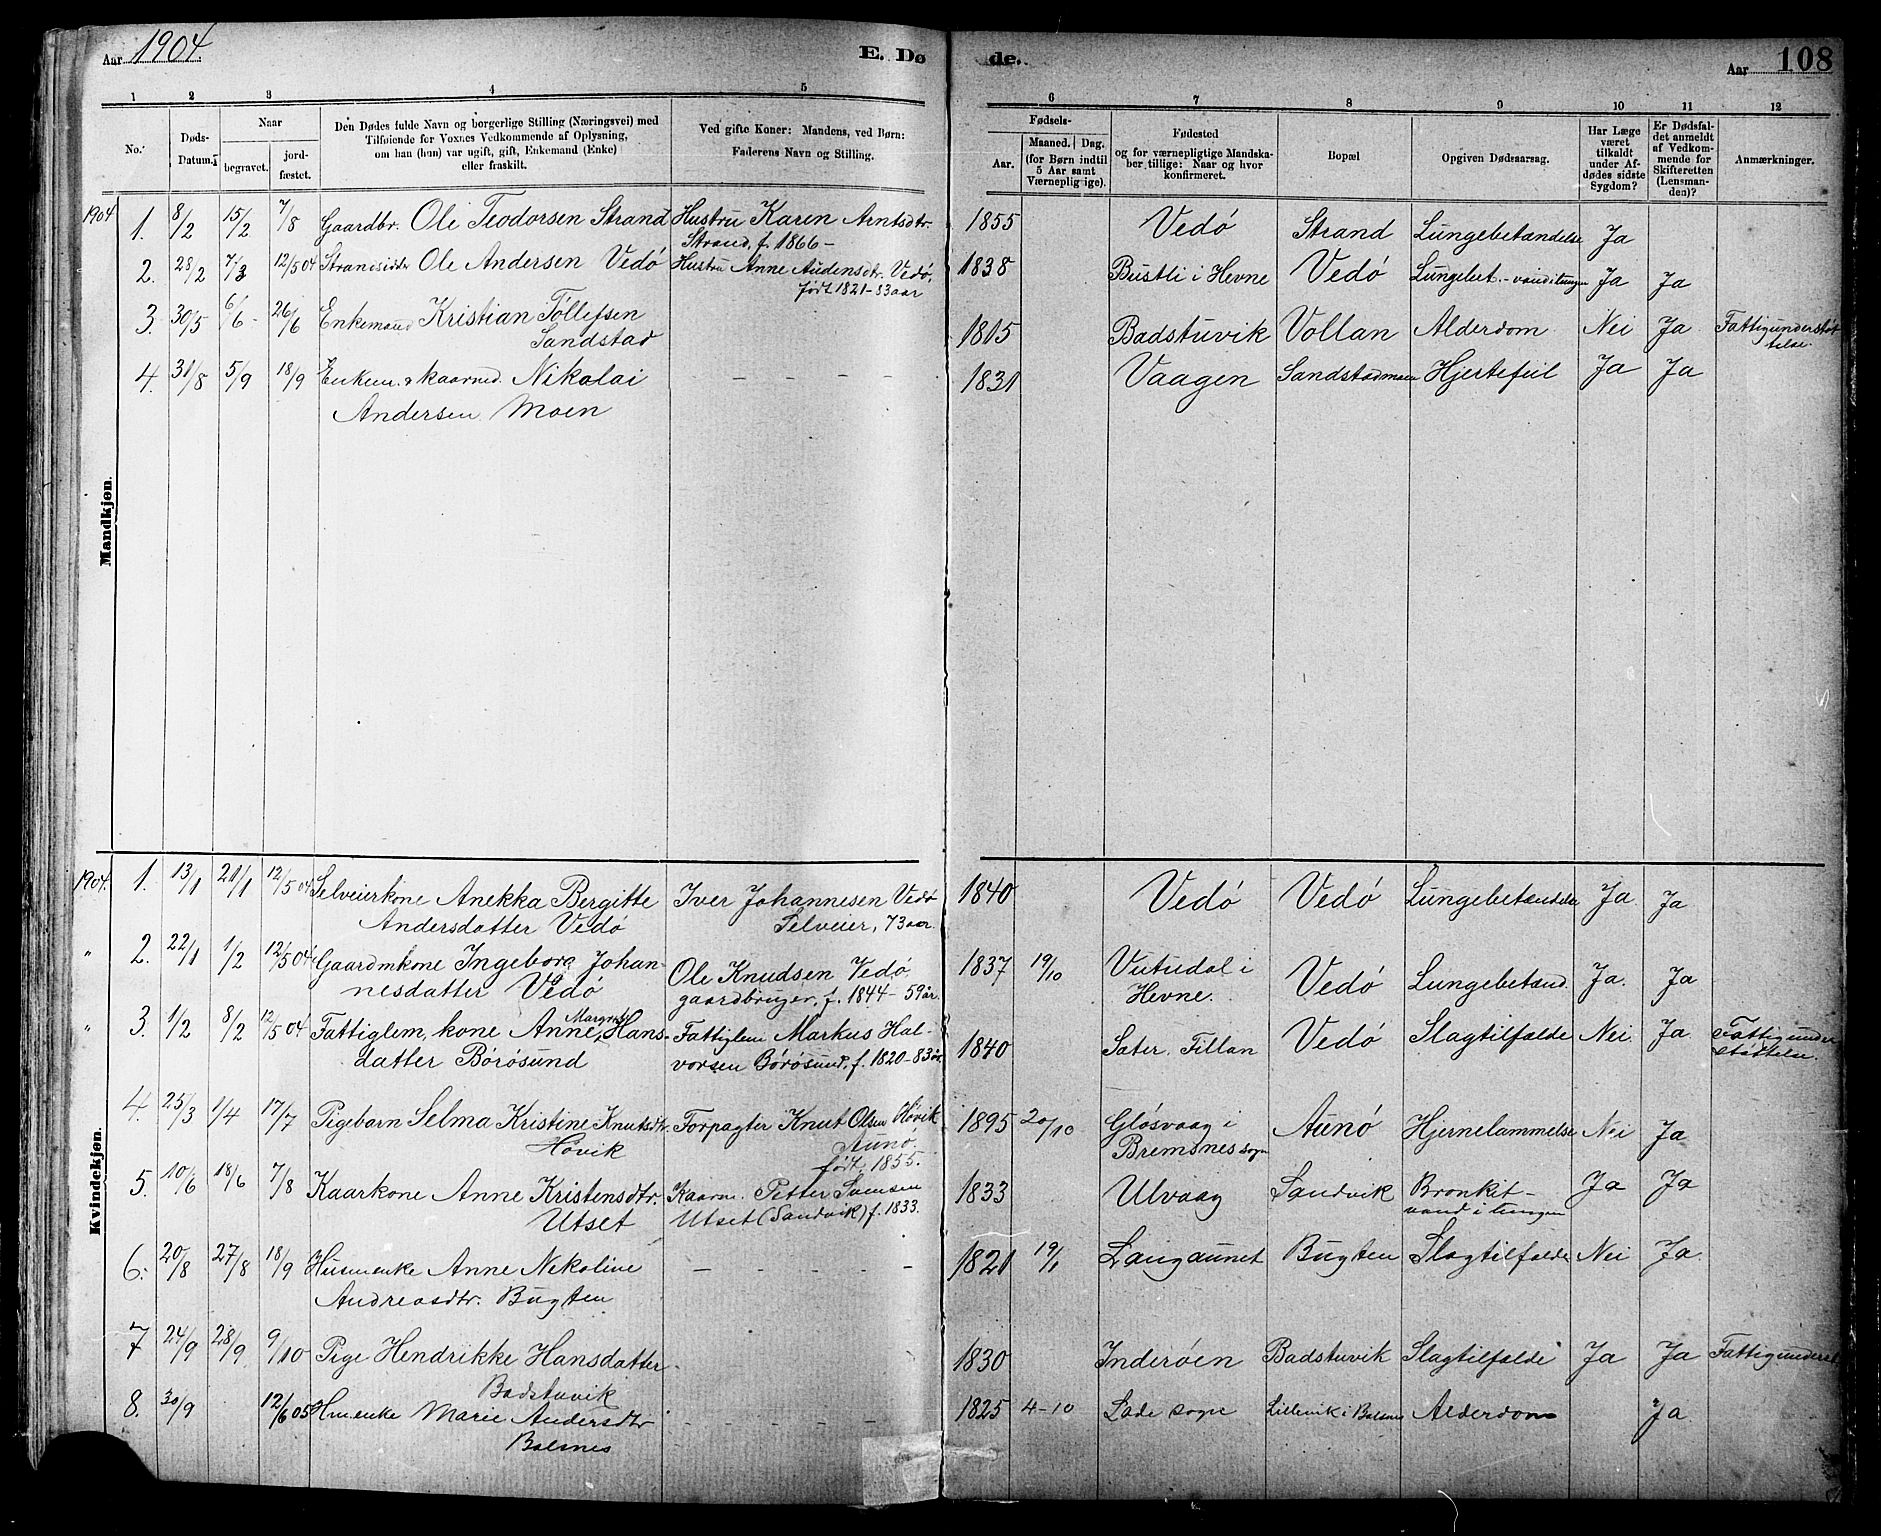 Aar 1904. E. Dø de. Aar 108
1 2 3 4 5 6 7 8 9 10 11 12
No. Døds-Datum. Naar begravet. jordfæstet. Den Dødes fulde Navn og borgerlige Stilling (Næringsvei) med Tilføiende for Voxnes Vedkommende af Oplysning, om han (hun) var ugift, gift, Enkemand (Enke) eller fraskilt. Ved gifte Koner: Mandens, ved Børn: Faderens Navn og Stilling. Fødsels- Aar. Maaned. Dag. (for Børn indtil 5 Aar samt Værnepligtige). Fødested og for værnepligtige Mandskaber tillige: Naar og hvor konfirmeret. Bopæl Opgiven Dødsaarsag. Har Læge været tilkaldt under Afdødes sidste Sygdom? Er Dødsfaldet anmeldt af Vedkommende for Skifteretten (Lensmanden)? Anmærkninger.
Mandkjøn.
1904 1. 8/2 15/2 7/8 Gaardbr. Ole Teodorsen Strand Hustru Karen Arntsdtr. 1855 Vedø Strand Lungebetændelse Ja
Strand, f. 1866 –
2. 28/2 7/3 12/5 04 Strandsidder Ole Andersen Vedø Hustru Anne Audensdtr. Vedø, 1838 Bustli i Hevne Vedø Lungebet. – vand i lungen Ja Ja
født 1821 – 83 aar
3. 30/5 6/6 – 26/6 Enkemand Kristian Tøllefsen 1815 Badstuvik Vollan Alderdom Nei Ja Fattigunderstøt
Sandstad telse.
4. 31/8 5/9 18/9 Enkem. & kaarmd. Nikolai – – – – – 1831 Vaagen Sandstadmoen Hjertefeil Ja Ja
Andersen Moen
Kvindekjøn.
1904. 1. 13/1 21/1 12/5 04 Selveierkone Anekka Bergitte Iver Johannesen Vedø 1840 Vedø Vedø Lungebetændelse Ja Ja
Andersdatter Vedø Selveier, 73 aar.
" 2. 22/1 1/2 12/5 04 Gaardmkone Ingeborg Johan- Ole Knudsen Vedø, 1837 19/10 Vutudal i Vedø Lungebetænd. Ja. Ja
nesdatter Vedø gaardbruger, f. 1844 – 59 år. Hevne.
" 3. 1/2 8/2 12/5 04 Fattiglem, kone Anne Margrete Hans- Fattiglem Markus Hal- 1840 Sæter. Fillan Vedø Slagtilfælde Nei Ja Fattigunder
datter Børøsund vorsen Børøsund, f. 1820 – 83 år støttelse.
4. 25/3 1/4 17/7 Pigebarn Selma Kristine Knutsdtr. Forpagter Knut Olsen Høvik 1895 20/10 Gløsvaag i Aunø Hjernelammelse Nei Ja
Høvik Aunø. Bremsnes sogn
født 1855.
5. 10/6 18/6 7/8 Kaarkone Anne Kristensdtr. Kaarm. Petter 1833 Ulvaag Sandvik Bronkit – Ja Ja
Utset Utset (Sandvik) f. 1833. vand i lungen
6. 20/8 27/8 18/9 Husmenke Anne Nekoline – – – – – 1821 19/1 Langaunet Bugten Slagtilfælde Nei Ja
Andreasdtr. Bugten
7 24/9 28/9 9/10 Pige Hendrikke Hansdatter 1830 Inderøen Badstuvik Slagtilfælde Ja Ja Fattigunderst.
Badstuvik
8. 30/9 12/6 05 Hmenke Marie Andersdtr – – – – – 1825 4-10 Lade sogn Lillevik i Balsnes Alderdom Ja
Balsnes